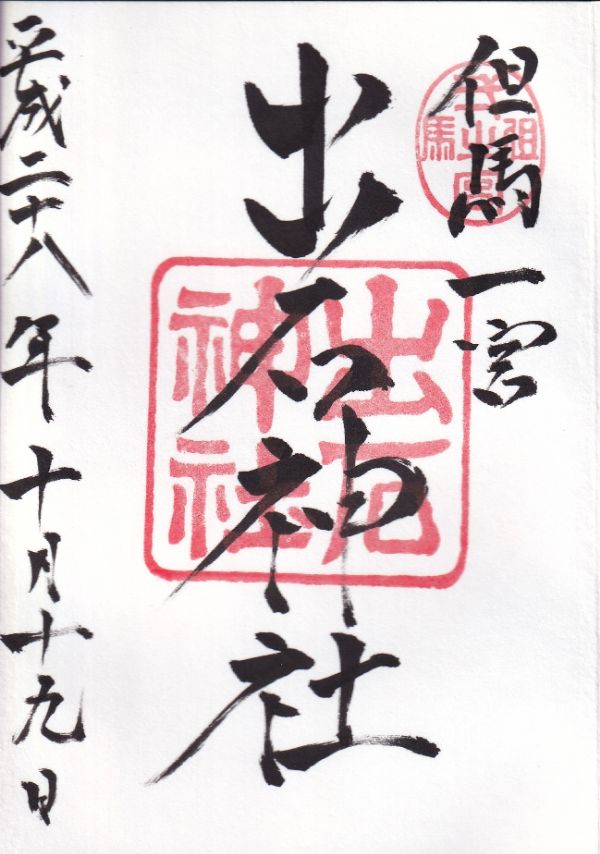 但馬一宮
出石神社
出石神社
平成二十八年十月十九日